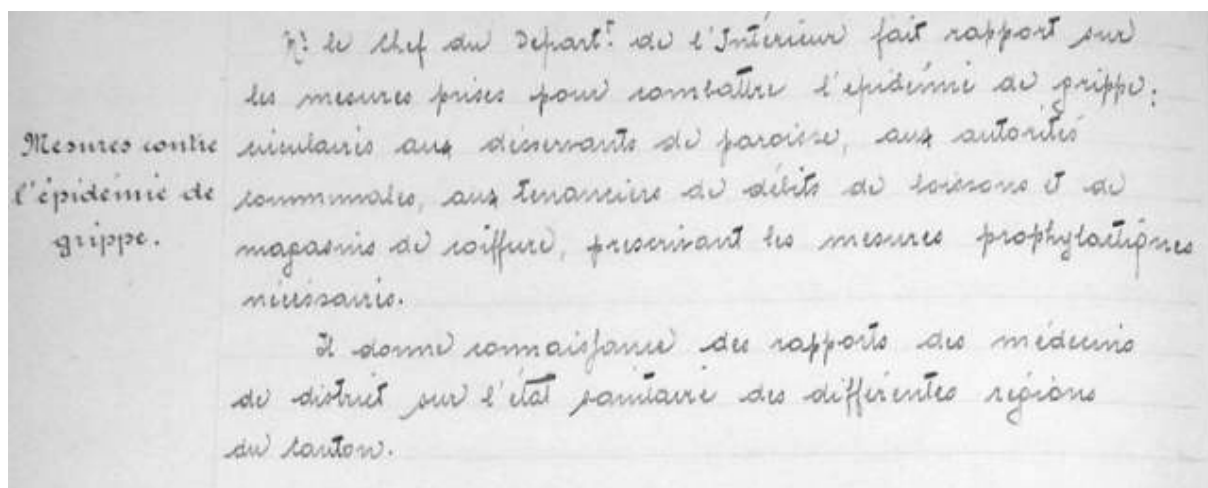 Mr le Chef du Départt. de l'Intérieur fait rapport sur
les mesures prises pour combattre l'épidémie de grippe:
circulaires aux desservants de paroisse, aux autorités
communales, aux tenanciers de débits de boissons et de
magasins de coiffure, prescrivant les mesures prophylactiques
nécessaires.
Il donne connaissance des rapports des médecins
de district sur l'état sanitaire des différentes régions
du canton.
Mesures contre
l'épidémie de
grippe.